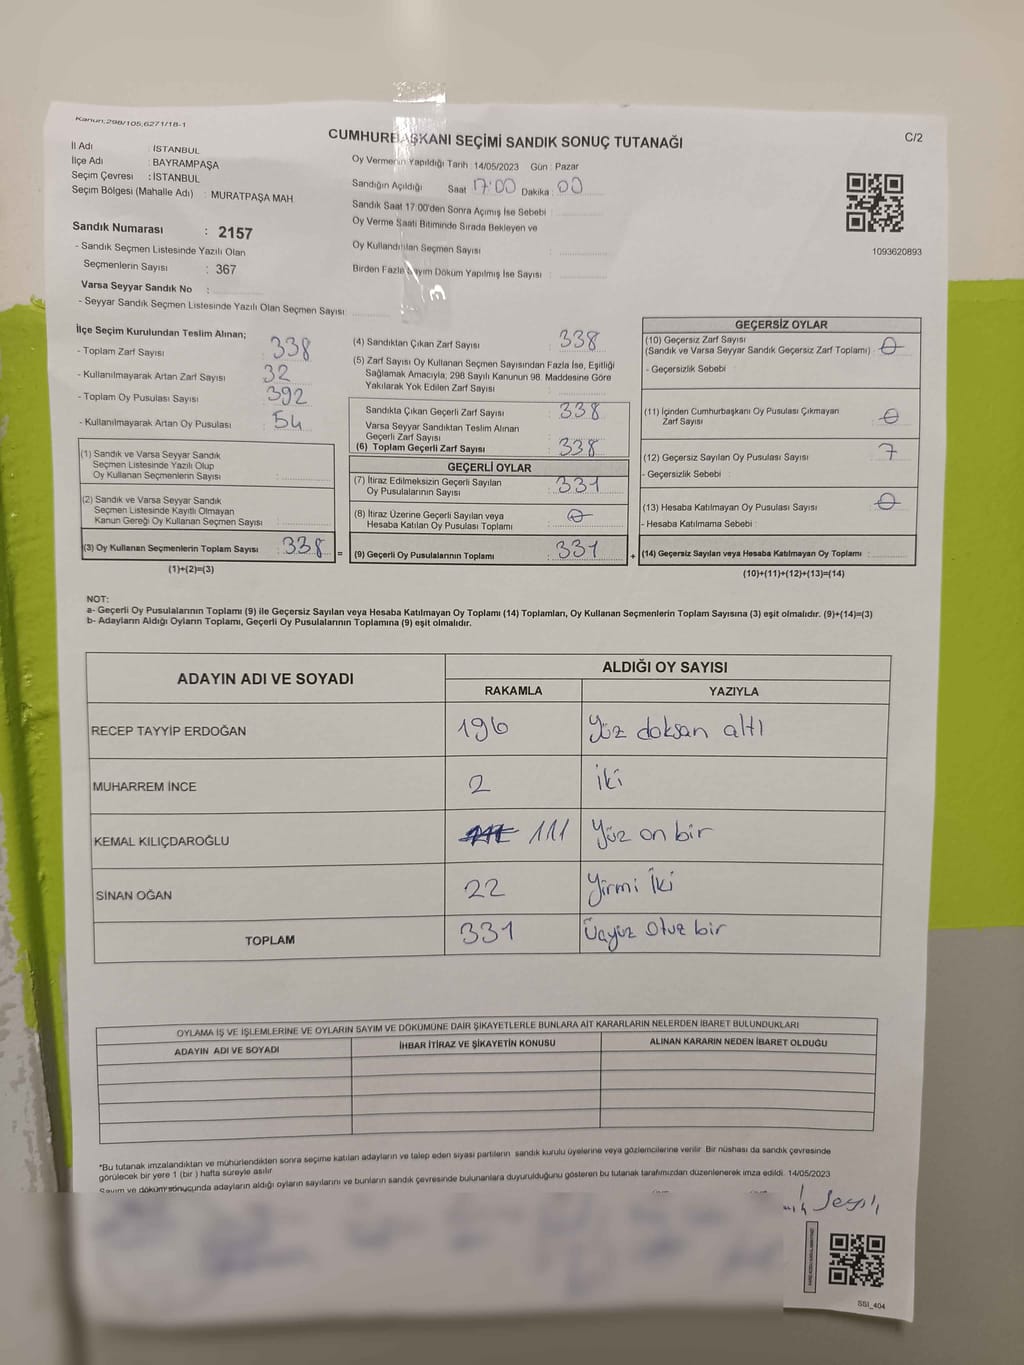 Kanun:298/105;6271/18-1
CUMHURBAŞKANI SEÇİMİ SANDIK SONUÇ TUTANAĞI
C/2
İl Adı : İSTANBUL
İlçe Adı : BAYRAMPAŞA
Seçim Çevresi : İSTANBUL
Seçim Bölgesi (Mahalle Adı) : MURATPAŞA MAH.
Sandık Numarası : 2157
- Sandık Seçmen Listesinde Yazılı Olan
Seçmenlerin Sayısı : 367
Varsa Seyyar Sandık No :
- Seyyar Sandık Seçmen Listesinde Yazılı Olan Seçmen Sayısı:
Oy Vermenin Yapıldığı Tarih :14/05/2023 Gün : Pazar
Sandığın Açıldığı Saat 17:00 Dakika : 00
Sandık Saat 17:00'den Sonra Açımış İse Sebebi :
Oy Verme Saati Bitiminde Sırada Bekleyen ve
Oy Kullandırılan Seçmen Sayısı :
Birden Fazla Sayım Döküm Yapılmış İse Sayısı :
1093620893
İlçe Seçim Kurulundan Teslim Alınan;
- Toplam Zarf Sayısı : 338
- Kullanılmayarak Artan Zarf Sayısı : 32
- Toplam Oy Pusulası Sayısı : 392
- Kullanılmayarak Artan Oy Pusulası : 54
(1) Sandık ve Varsa Seyyar Sandık
Seçmen Listesinde Yazılı Olup
Oy Kullanan Seçmenlerin Sayısı :
(2) Sandık ve Varsa Seyyar Sandık
Seçmen Listesinde Kayıtlı Olmayan
Kanun Gereği Oy Kullanan Seçmen Sayısı :
(3) Oy Kullanan Seçmenlerin Toplam Sayısı : 338 =
(1)+(2)=(3)
(4) Sandıktan Çıkan Zarf Sayısı : 338
(5) Zarf Sayısı Oy Kullanan Seçmen Sayısından Fazla İse, Eşitliği
Sağlamak Amacıyla; 298 Sayılı Kanunun 98. Maddesine Göre
Yakılarak Yok Edilen Zarf Sayısı :
Sandıkta Çıkan Geçerli Zarf Sayısı : 338
Varsa Seyyar Sandıktan Teslim Alınan
Geçerli Zarf Sayısı :
(6) Toplam Geçerli Zarf Sayısı : 338
GEÇERLİ OYLAR
(7) İtiraz Edilmeksizin Geçerli Sayılan
Oy Pusulalarının Sayısı : 331
(8) İtiraz Üzerine Geçerli Sayılan veya
Hesaba Katılan Oy Pusulası Toplamı : 0
(9) Geçerli Oy Pusulalarının Toplamı : 331 +
GEÇERSİZ OYLAR
(10) Geçersiz Zarf Sayısı
(Sandık ve Varsa Seyyar Sandık Geçersiz Zarf Toplamı) : 0
- Geçersizlik Sebebi :
(11) İçinden Cumhurbaşkanı Oy Pusulası Çıkmayan
Zarf Sayısı : 0
(12) Geçersiz Sayılan Oy Pusulası Sayısı : 7
- Geçersizlik Sebebi :
(13) Hesaba Katılmayan Oy Pusulası Sayısı : 0
- Hesaba Katılmama Sebebi :
(14) Geçersiz Sayılan veya Hesaba Katılmayan Oy Toplamı :
(10)+(11)+(12)+(13)=(14)
NOT:
a- Geçerli Oy Pusulalarının Toplamı (9) ile Geçersiz Sayılan veya Hesaba Katılmayan Oy Toplamı (14) Toplamları, Oy Kullanan Seçmenlerin Toplam Sayısına (3) eşit olmalıdır. (9)+(14)=(3)
b- Adayların Aldığı Oyların Toplamı, Geçerli Oy Pusulalarının Toplamına (9) eşit olmalıdır.
ADAYIN ADI VE SOYADI ALDIĞI OY SAYISI
RAKAMLA YAZIYLA
RECEP TAYYİP ERDOĞAN 196 Yüz doksan altı
MUHARREM İNCE 2 iki
KEMAL KILIÇDAROĞLU 111 Yüz on bir
SİNAN OĞAN 22 Yirmi İki
TOPLAM 331 Üçyüz Otuz bir
OYLAMA İŞ VE İŞLEMLERİNE VE OYLARIN SAYIM VE DÖKÜMÜNE DAİR ŞİKAYETLERLE BUNLARA AİT KARARLARIN NELERDEN İBARET BULUNDUKLARI
ADAYIN ADI VE SOYADI İHBAR İTİRAZ VE ŞİKAYETİN KONUSU ALINAN KARARIN NEDEN İBARET OLDUĞU
*Bu tutanak imzalandıktan ve mühürlendikten sonra seçime katılan adayların ve talep eden siyasi partilerin sandık kurulu üyelerine veya gözlemcilerine verilir. Bir nüshası da sandık çevresinde
görülecek bir yere 1 (bir ) hafta süreyle asılır.
Sayım ve döküm sonucunda adayların aldığı oyların sayılarını ve bunların sandık çevresinde bulunanlara duyurulduğunu gösteren bu tutanak tarafımızdan düzenlenerek imza edildi. 14/05/2023
SSI_404